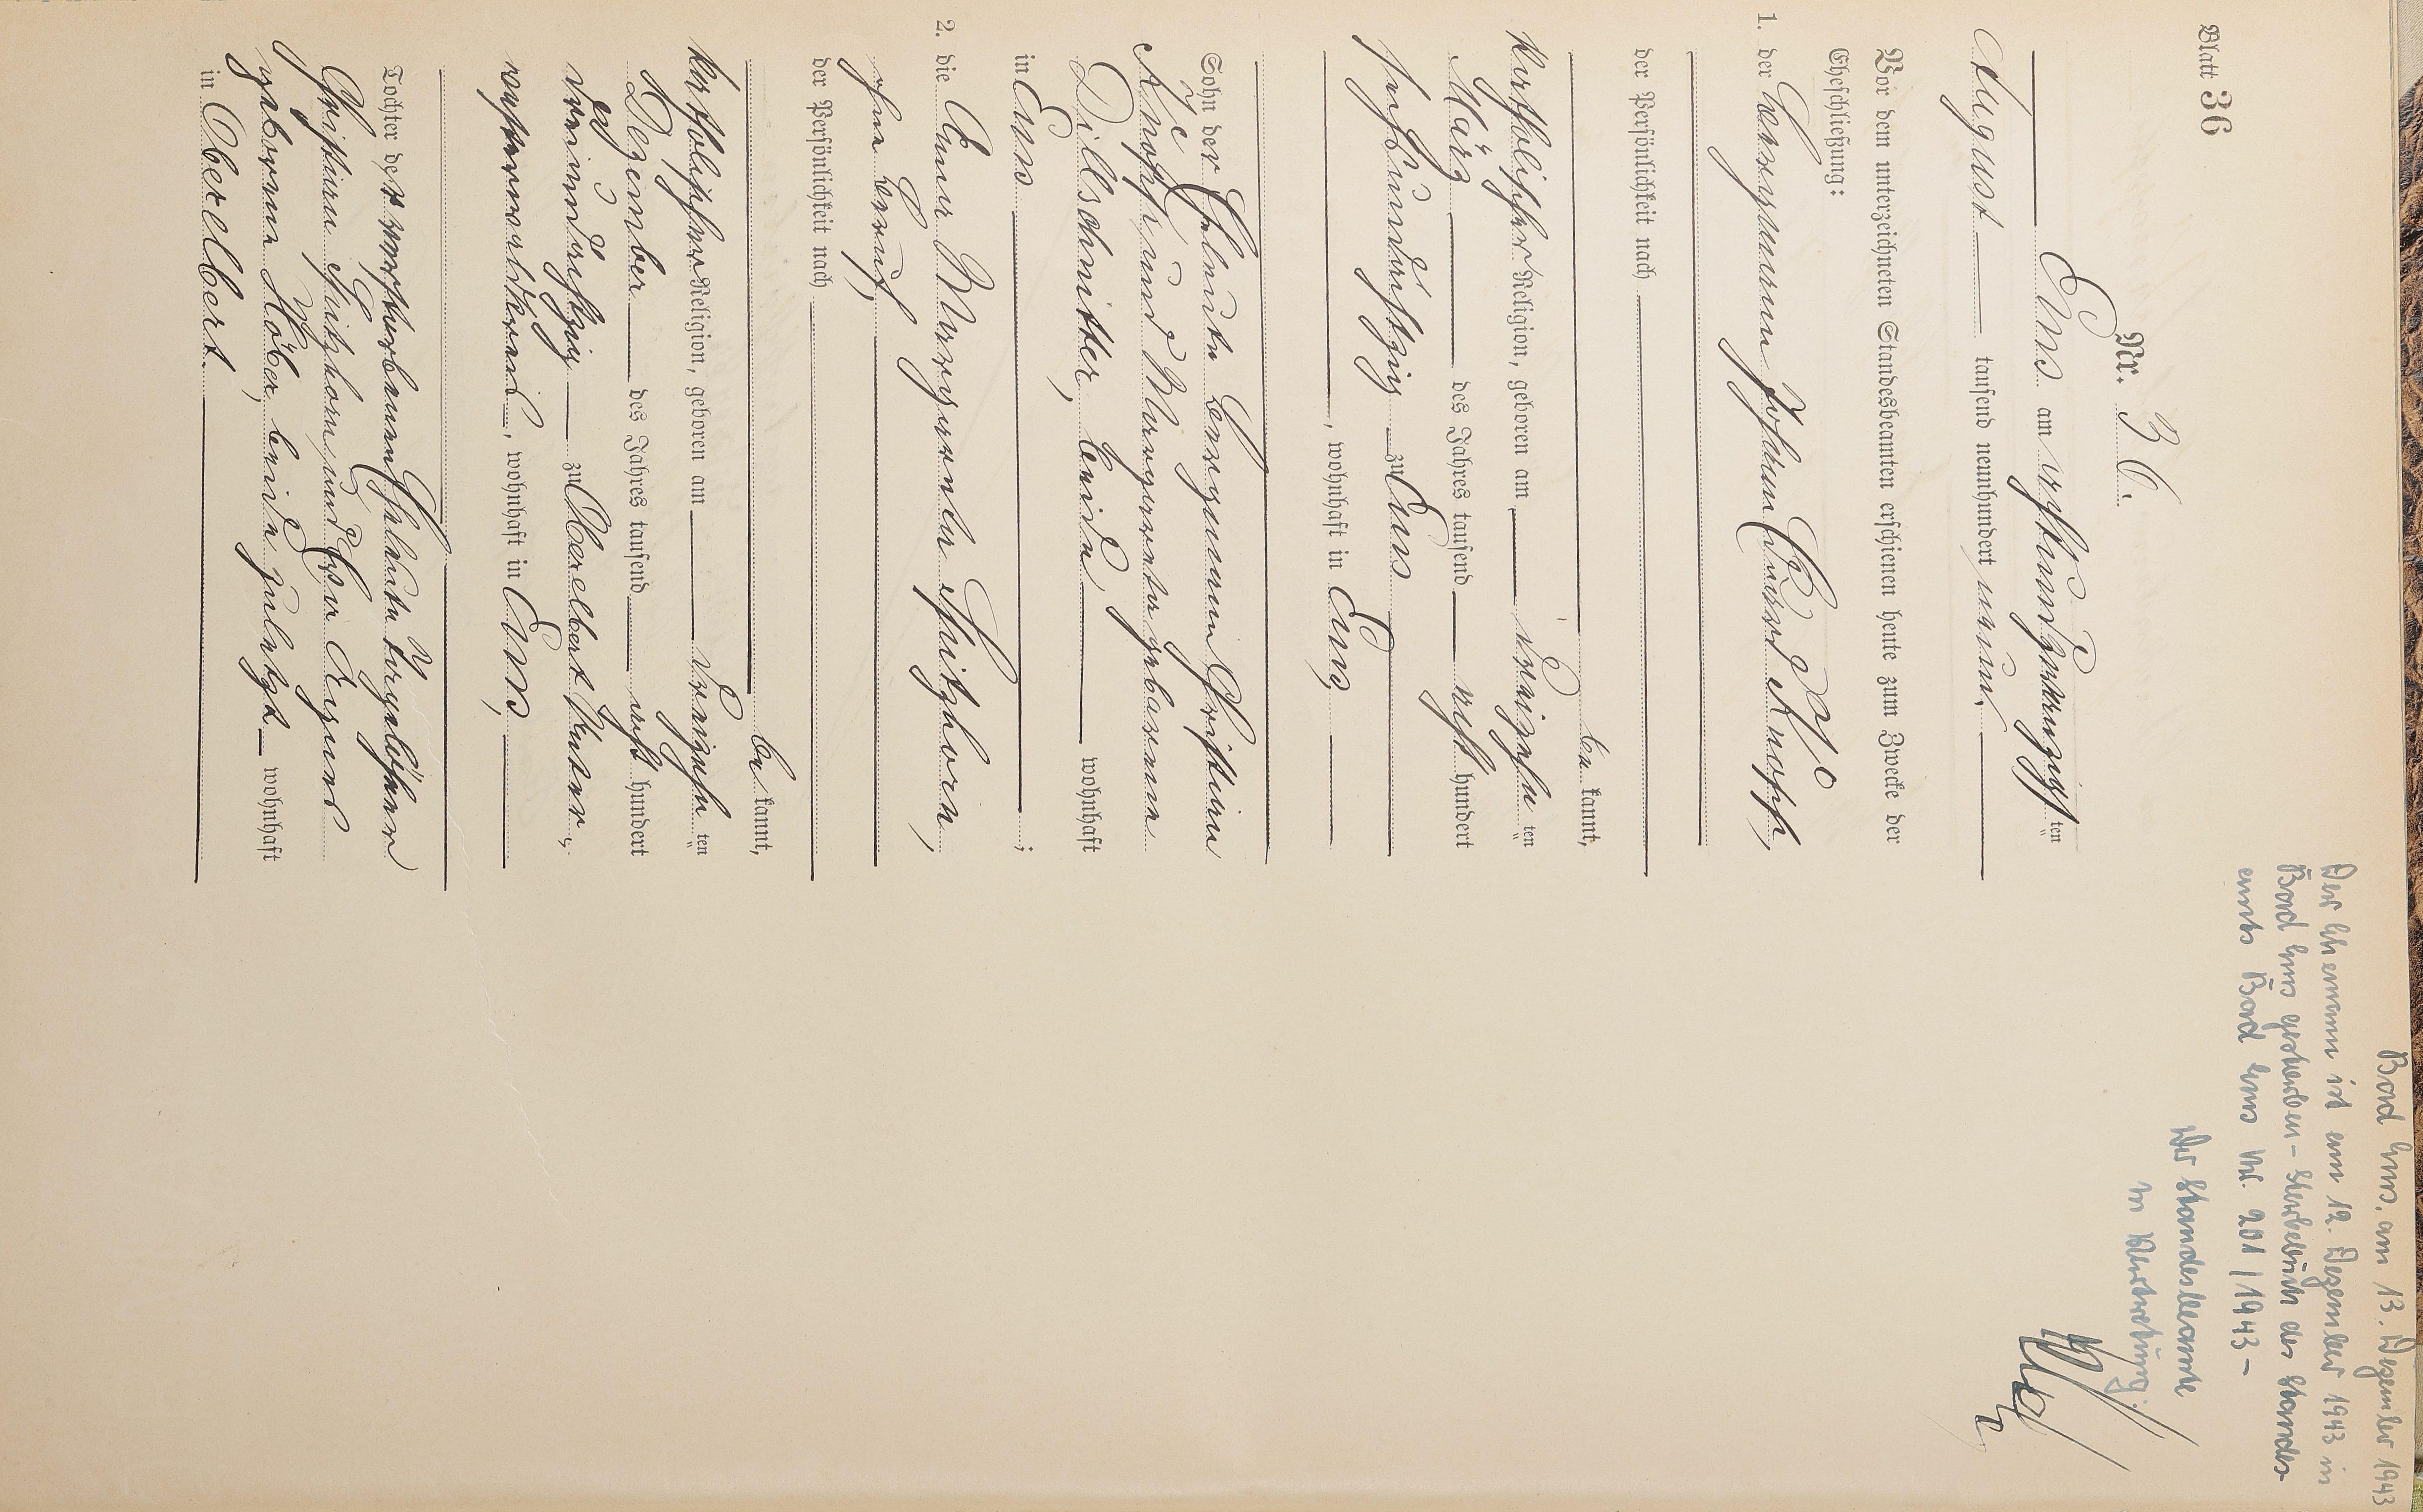 Blatt 36
Nr. 36.
Ems am achtundzwanzigsten
August tausend neunhundert neun.
Vor dem unterzeichneten Standesbeamten erschienen heute zum Zwecke der
Eheschließung:
1. der Bergmann Johann Knopp,
der Persönlichkeit nach
be kannt,
katholischer Religion, geboren am dreizehn ten
März des Jahres tausend acht hundert
fünfundachtzig zu Ems
, wohnhaft in Ems,
Sohn der Eheleute Bergmann Christian
Knopp und Margareta geborene
Dillschnitter, beide wohnhaft
in Ems ;
2. die Anna Margareta Spitzhorn,
ohne Beruf,
der Persönlichkeit nach
be kannt,
katholischer Religion, geboren am dreizehn ten
Dezember des Jahres tausend acht hundert
zu Oberelbert
, wohnhaft in Ems,
Tochter der verstorbenen Eheleute Tagelöhner
Christian Spitzhorn und Eva
geborene Höber, beide zuletzt wohnhaft
in Oberelbert.
Bad Ems, am 13. Dezember 1943
Der Ehemann ist am 12. Dezember 1943 in
Bad Ems gestorben - Sterbebuch des Standes-
amts Bad Ems Nr. 201/1943 -
Der Standesbeamte
In Vertretung: